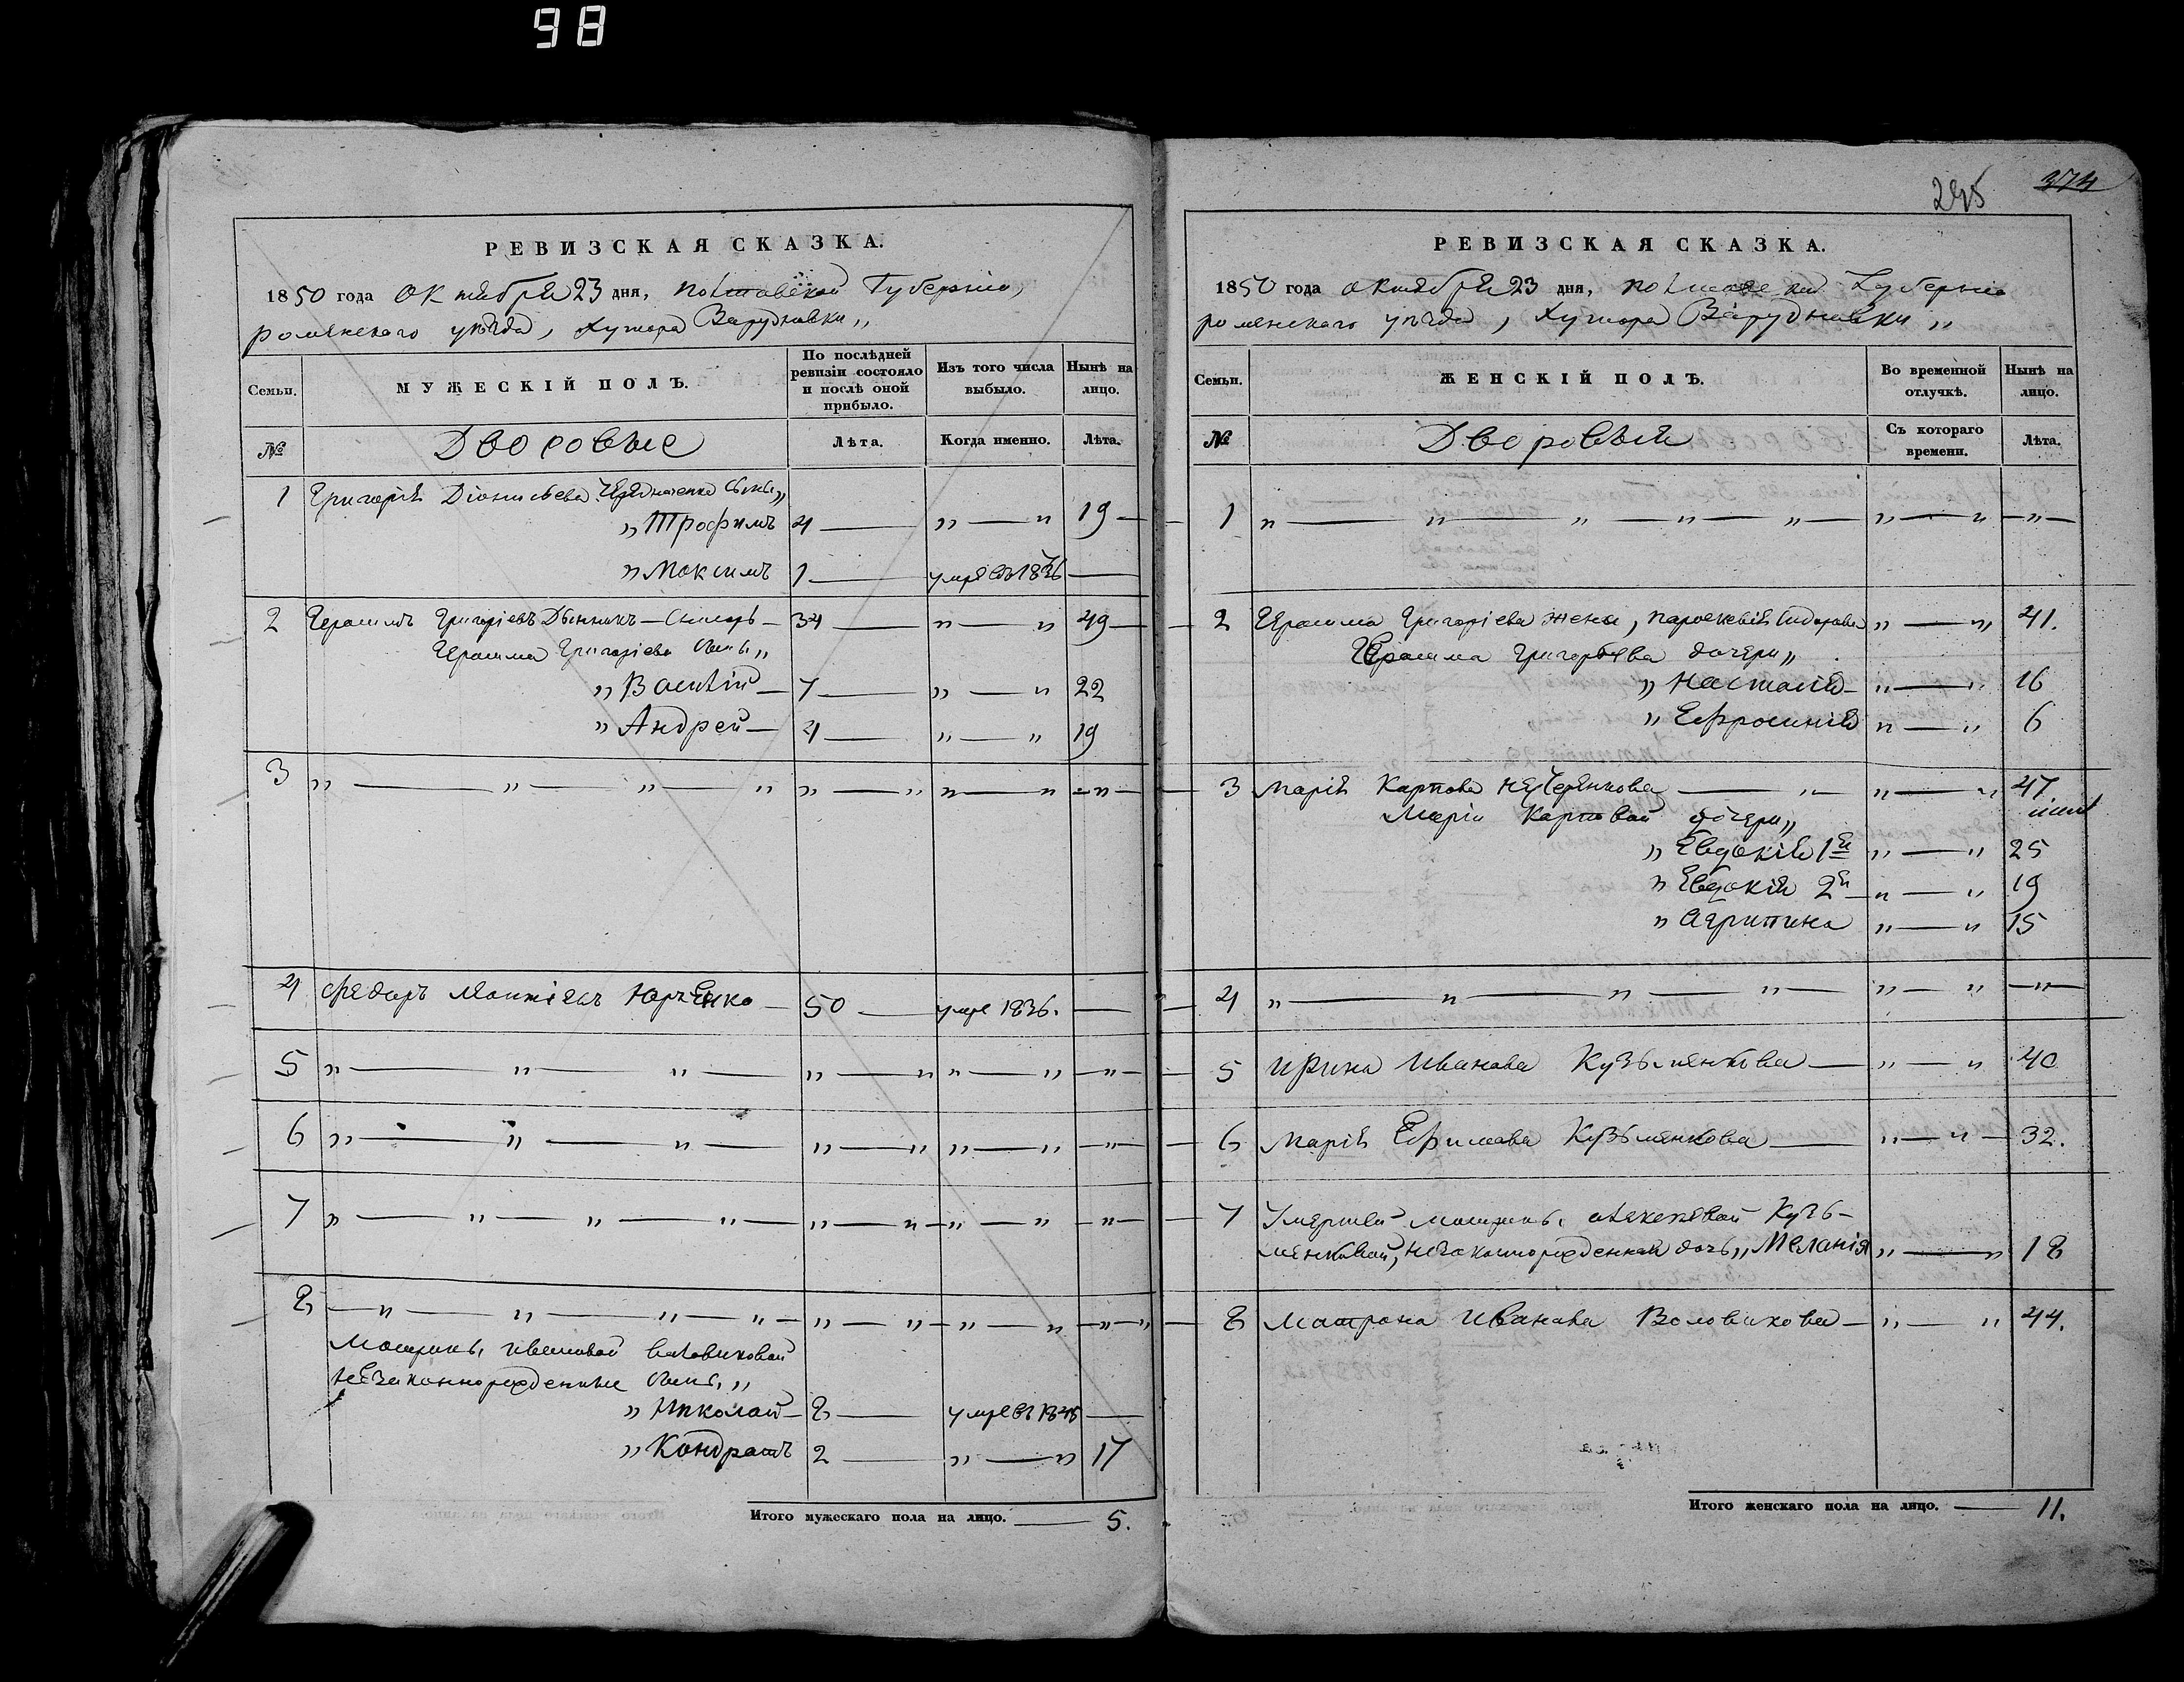 98
295 374
РЕВИЗСКАЯ СКАЗКА.
1850 года октября 23 дня, Полтавской Губернiи,
роменского уѣзда, Хутора Варудновки „
Семьи. МУЖЕСКІЙ ПОЛЪ. По послѣдней ревизіи состояло и послѣ оной прибыло. Изъ того числа выбыло. Нынѣ на лицо.
№ Дворовые Лѣта. Когда именно. Лѣта.
1 Григорія Діонисьева сыны „
„ Трофимъ 4 — „ — „ 19
„ Максимъ 1 — умре въ 1836 —
2 Герасимъ Григоріевъ — 34 — „ — „ 49
Герасима Григоріева сыны „
„ Василій — 7 — „ — „ 22
„ Андрей — 4 — „ — „ 19
3 „ — „ — „ — „ „ — „ „ — „ — „ —
4 Федоръ Юрченко — 50 — умре 1836. —
5 „ — „ — „ — „ — „ „ — „ — „ —
6 „ — „ — „ — „ — „ „ — „ — „ —
7 „ — „ — „ — „ — „ — „ — „ — „ — „ —
8 — „ — „ — „ — „ — „ — „ — „ — „ — „ — „
Матрины Ивановой Воловиковой
незаконнорожденные сыны „
„ Николай — 8 — умре въ —
„ Кондратъ 2 — „ — „ 17
Итого мужескаго пола на лицо. — 5.
РЕВИЗСКАЯ СКАЗКА.
1850 года октября 23 дня, Полтавской Губернiи
роменского уѣзда, Хутора Варудновки „
Семьи. ЖЕНСКІЙ ПОЛЪ. Во временной отлучкѣ. Нынѣ на лицо.
№ Дворовыи Съ котораго времени. Лѣта.
1 „ — „ — „ — „ — „ — „ — „ — „ —
2 Герасима Григоріева жена, Параскевія Сидорова „ — „ 41.
Герасима Григорьева дочери „
„ Настасія — „ — „ 16
„ Ефросинія „ — „ 6
3 Марія Карпова Нечеренкова — „ — „ — „ 47
Маріи Карповой дочери „
„ Евдокія 1я „ — „ 25
„ Евдокія 2я — „ — „ 19
„ Агрипина „ — „ 15
4 „ — „ — „ — „ — „ — „ — „ —
5 Ирина Иванова Кузьменкова — „ — „ 40
6 Марія Ефимова Кузьменкова — „ — „ — 32.
7 Умершей Матрины Алексеевой Кузь-
менковой, незаконнорожденная дочь „ Меланія „ — „ 18
8 Матрона Иванова Воловикова — „ — „ 44.
Итого женскаго пола на лицо. — 11.